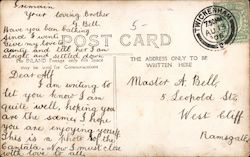 I remain
Your loving Brother
J. Bell.
Have you been bathing
since I went
give my love to
aunty and tell her I am
alright and settled down
5-
TWICKENHAM
7.30 PM
AU
POST CARD
For INLAND Postage only this Space
may be used for Communications
THE ADDRESS ONLY TO BE
WRITTEN HERE
Dear Alf
I am writing to
let you know I am
quite well, hoping you
are the same, I hope
you are enjoying yourself
This is a photo of
Cantata. Now I must close
with love to all
Master A. Bell,
1 Leopold St.
West Cliff
Ramsgate